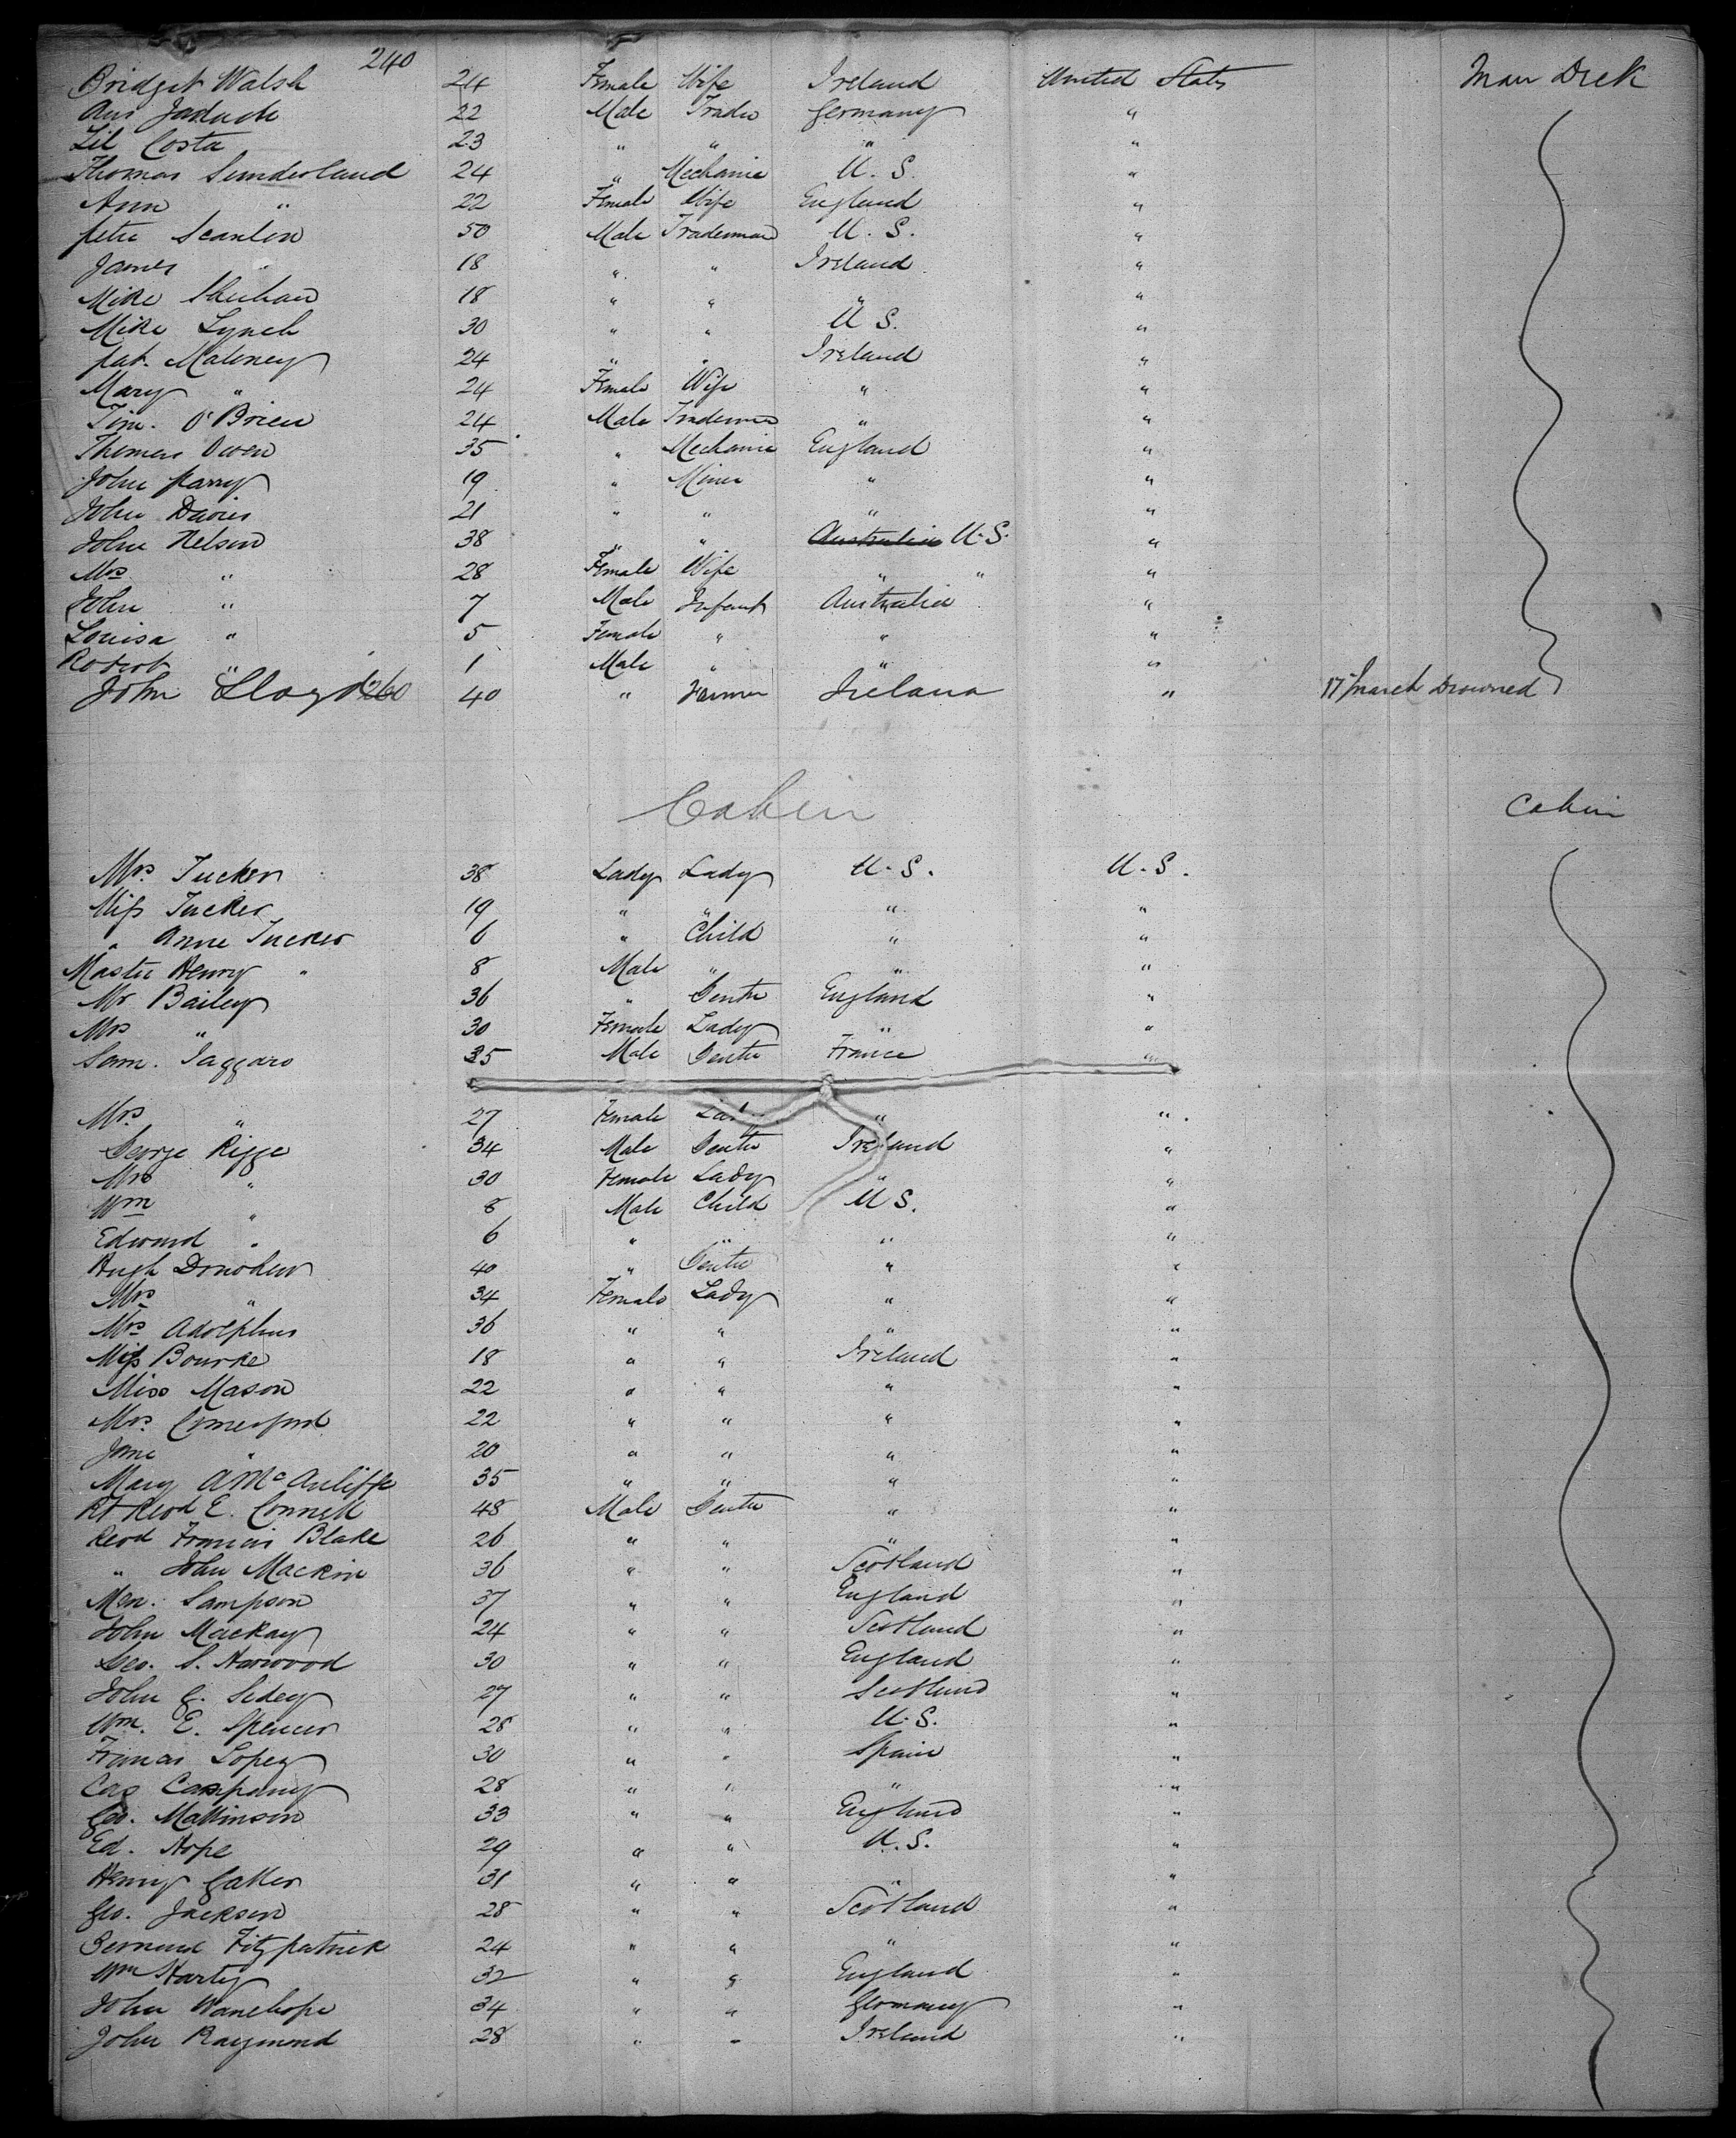 240
Bridget Walsh 24 Female Wife Ireland United States Main Deck
22 Male Trader Germany "
Costa 23 " " " "
Thomas Sunderland 24 " Mechanic U. S. "
Ann " 22 Female Wife England "
peter Scanlin 50 Male Tradesman U. S. "
James " 18 " " Ireland "
Mike Sheehan 18 " " " "
Mike Lynch 30 " " U S. "
pat. Maloney 24 " " Ireland "
Mary " 24 Female Wife " "
Tim. O'Brien 24 Male Tradesman " "
Thomas Owen 35 " Mechanic England "
John parry 19 " Miner " "
John Davies 21 " " " "
John Nelson 38 " " Australia U. S. "
Mrs " 28 Female Wife " " "
John " 7 Male Infant Australia "
Louisa " 5 Female " " "
Robert " 1 Male " " "
John Lloyd 260 40 " Farmer Ireland " 17 March Drowned
Cabin Cabin
Mrs. Tucker 38 Lady Lady U. S. U. S.
Miss Tucker 19 " " " "
" Anne Tucker 6 " Child " "
Master Henry " 8 Male " " "
Mr Bailey 36 " Gentn England "
Mrs " 30 Female Lady " "
Sam. Jaggars 35 Male Gentn France "
Mrs " 27 Female Lady " "
George Rigge 34 Male Gentn Ireland "
Mrs " 30 Female Lady " "
Wm " 8 Male Child U S. "
Edward " 6 " " " "
Hugh Donohew 40 " Gentn " "
Mrs " 34 Female Lady " "
Mrs Adolphus 36 " " " "
Miss Bourke 18 " " Ireland "
Miss Mason 22 " " " "
Mrs. Comerford 22 " " " "
Jane " 20 " " " "
Mary A McAuliffe 35 " " " "
Rt Revd E. Connell 48 Male Gentn " "
Revd Francis Blake 26 " " " "
" John Mackin 36 " " Scotland "
Men. Sampson 37 " " England "
John Mackay 24 " " Scotland "
Geo. S. Harwood 30 " " England "
John G. Sidey 27 " " Scotland "
Wm. E. Spencer 28 " " U. S. "
Francas Lopez 30 " " Spain "
Company 28 " " " "
Geo. Mallinson 33 " " England "
Ed. Hope 29 " " U. S. "
Henry 31 " " " "
Geo. Jackson 28 " " Scotland "
Bernard Fitzpatrick 24 " " " "
Wm Harty 32 " " England "
John Wanehope 34 " " Germany "
John Raymond 28 " " Ireland "